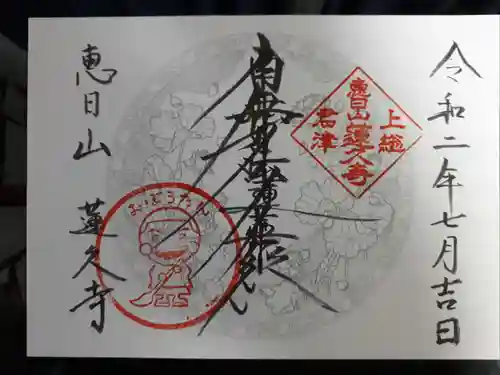 令和二年七月吉日
上総
恵日山蓮久寺
君津
南無妙法蓮華経
恵日山 蓮久寺